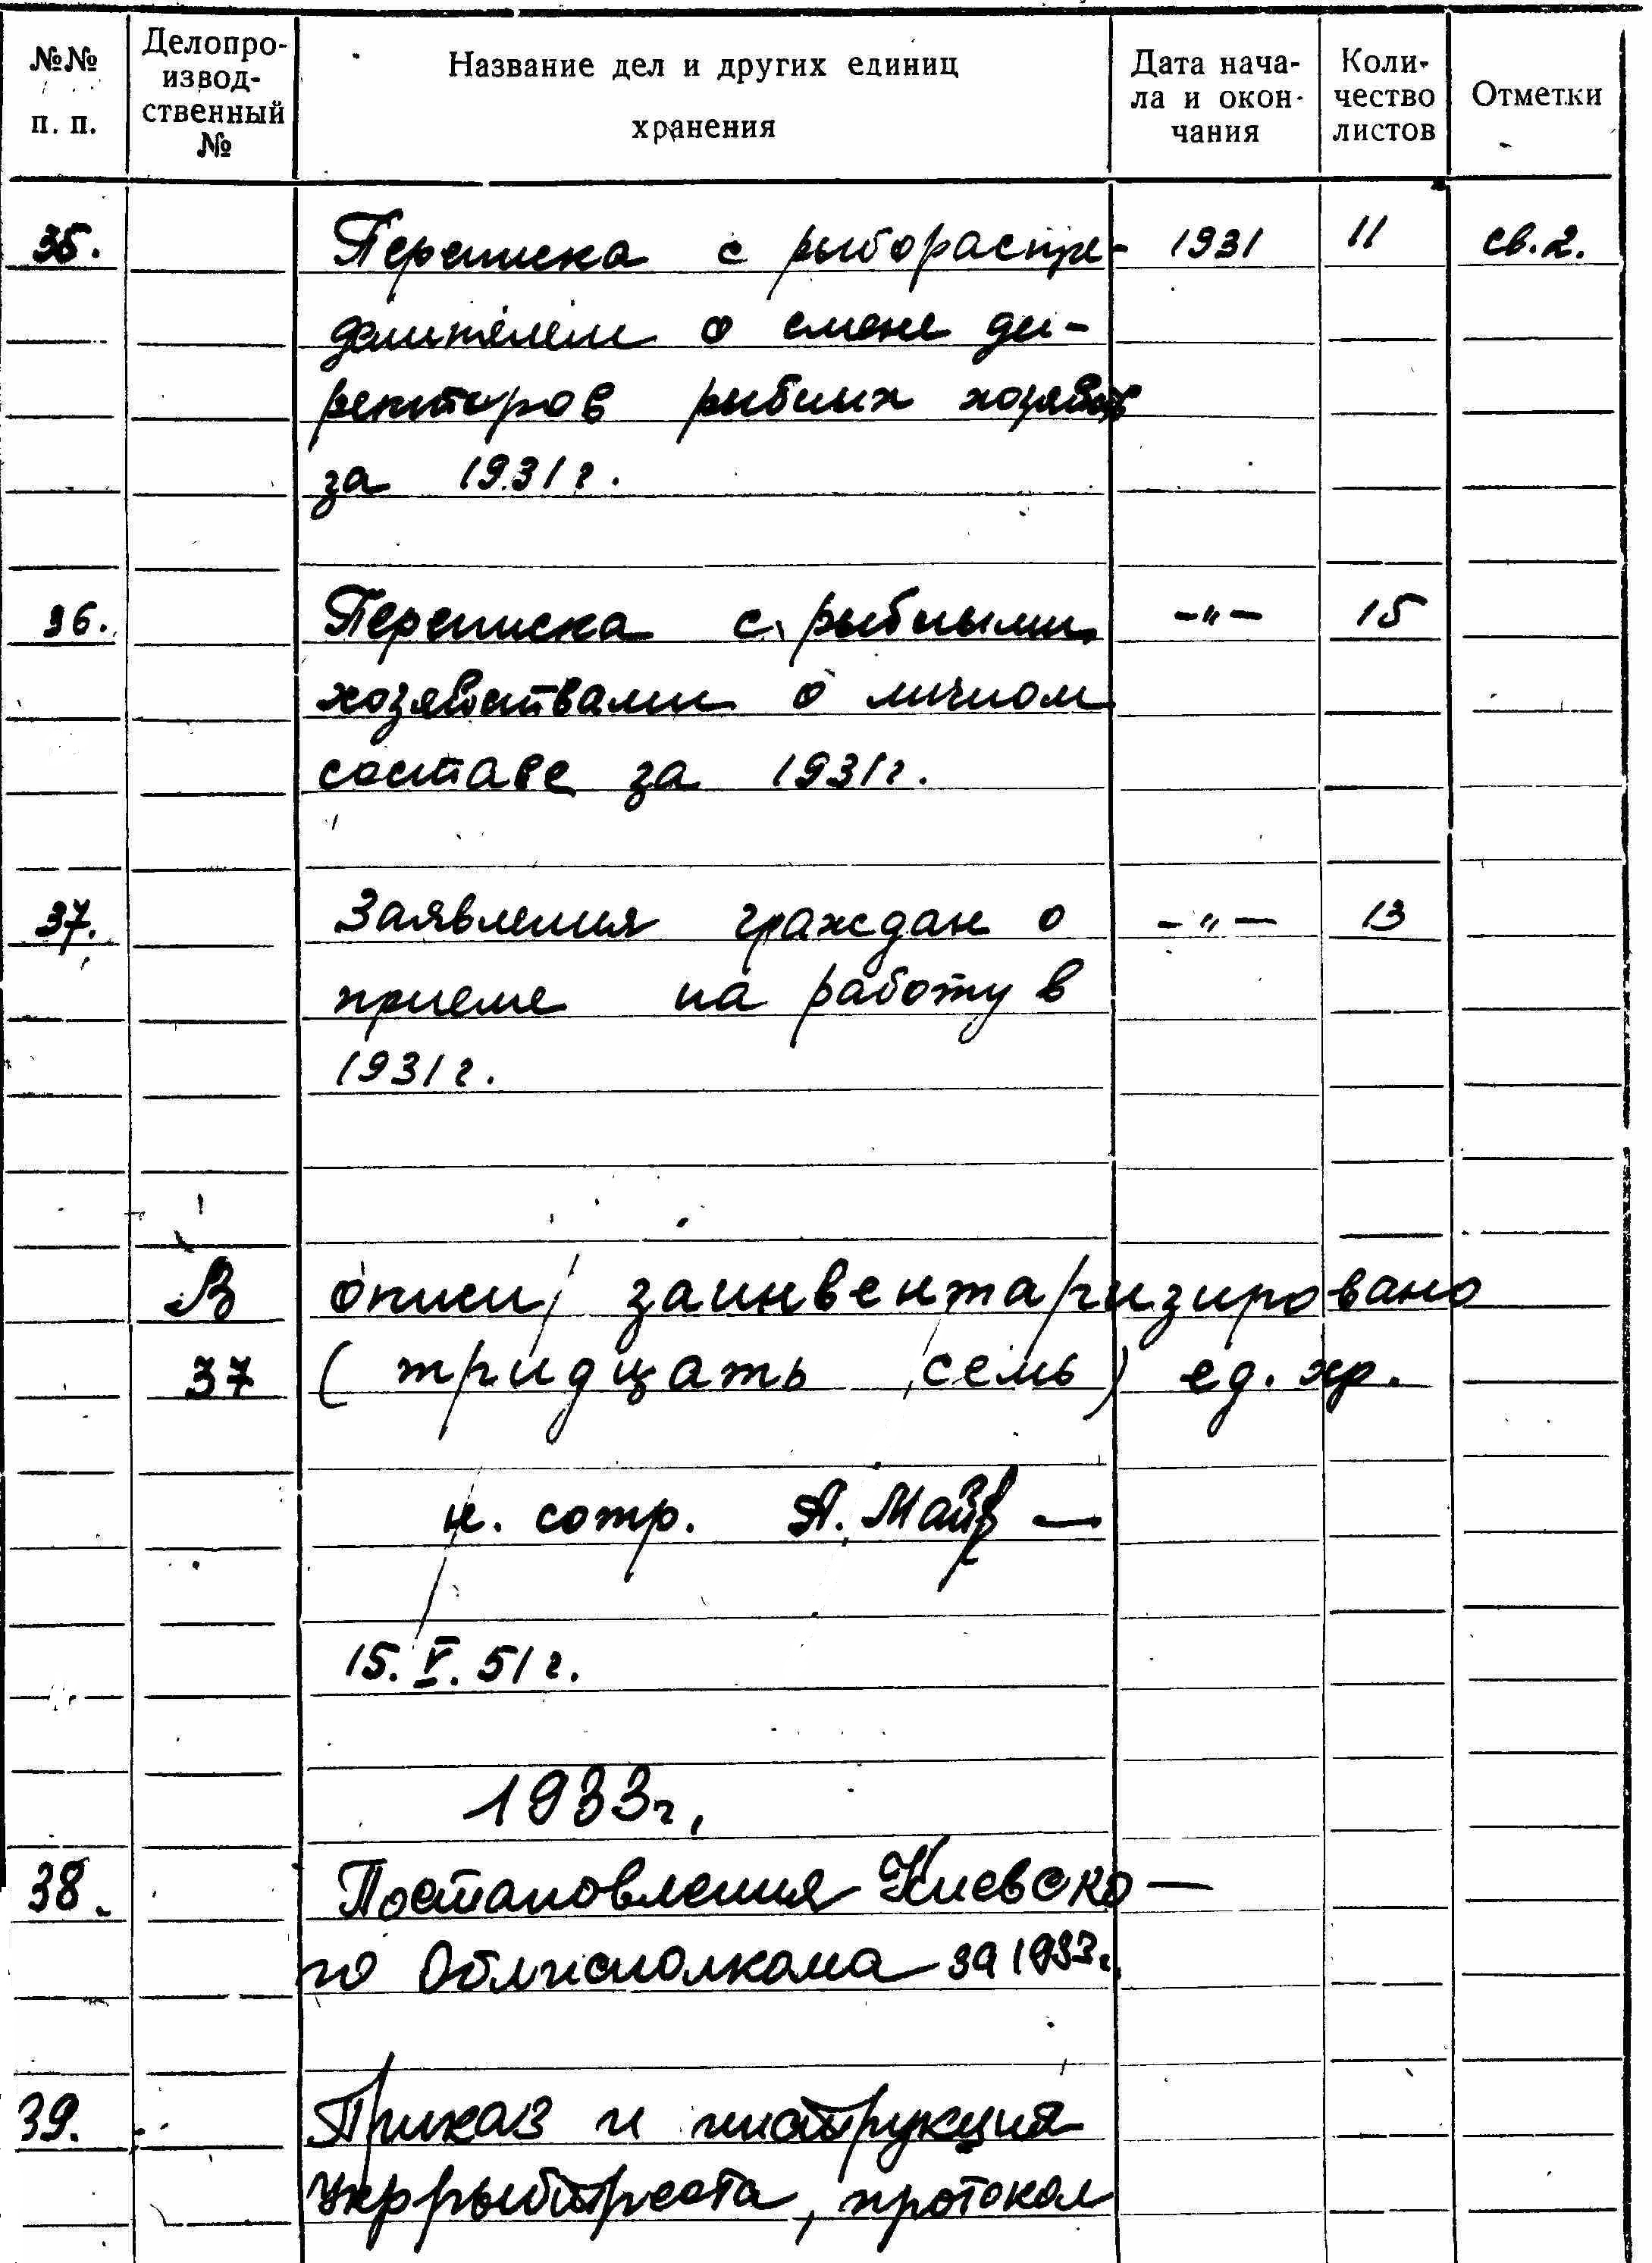 №№ п. п. Делопроизводственный № Название дел и других единиц хранения Дата начала и окончания Количество листов Отметки
35. Переписка с рыбораспре- 1931 11 св.2.
делителем о смене ди-
ректоров рыбных хозяйств
за 1931г.
36. Переписка с рыбными -"- 15
хозяйствами о личном
составе за 1931г.
37. Заявления граждан о -"- 13
приеме на работу в
1931г.
В описи заинвентаризировано
37 (тридцать семь) ед. хр.
н. сотр. А.
15.V.51г.
1933г.
38. Постановления Киевско-
го Облисполкома за 1933г.
39. Приказ и инструкция
Укррыбтреста, протокол